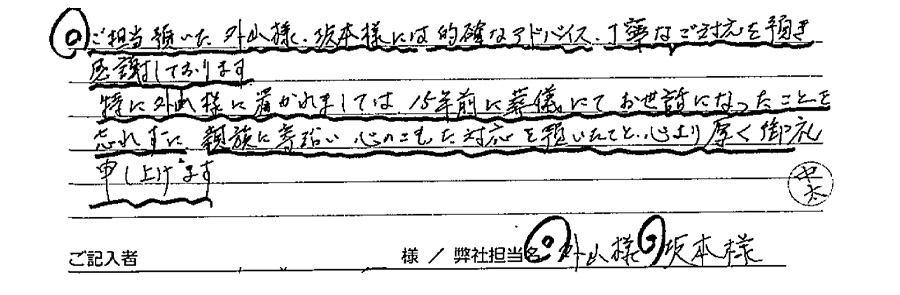 ご担当頂いた外山様、坂本様には的確なアドバイス、丁寧なご対応を頂き
感謝しております
特に外山様に置かれましては、15年前に葬儀にてお世話になったことを
忘れずに親族に寄り添い心のこもった対応を頂いたこと、心より厚く御礼
申し上げます
ご記入者 様 / 弊社担当名 外山様 坂本様